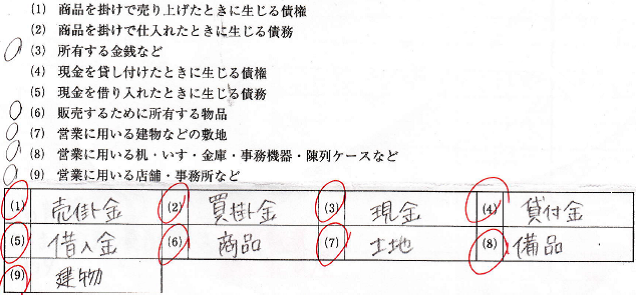 (1) 商品を掛けで売り上げたときに生じる債権
(2) 商品を掛けで仕入れたときに生じる債務
(3) 所有する金銭など
(4) 現金を貸し付けたときに生じる債権
(5) 現金を借り入れたときに生じる債務
(6) 販売するために所有する物品
(7) 営業に用いる建物などの敷地
(8) 営業に用いる机・いす・金庫・事務機器・陳列ケースなど
(9) 営業に用いる店舗・事務所など
(1) 売掛金 (2) 買掛金 (3) 現金 (4) 貸付金
(5) 借入金 (6) 商品 (7) 土地 (8) 備品
(9) 建物